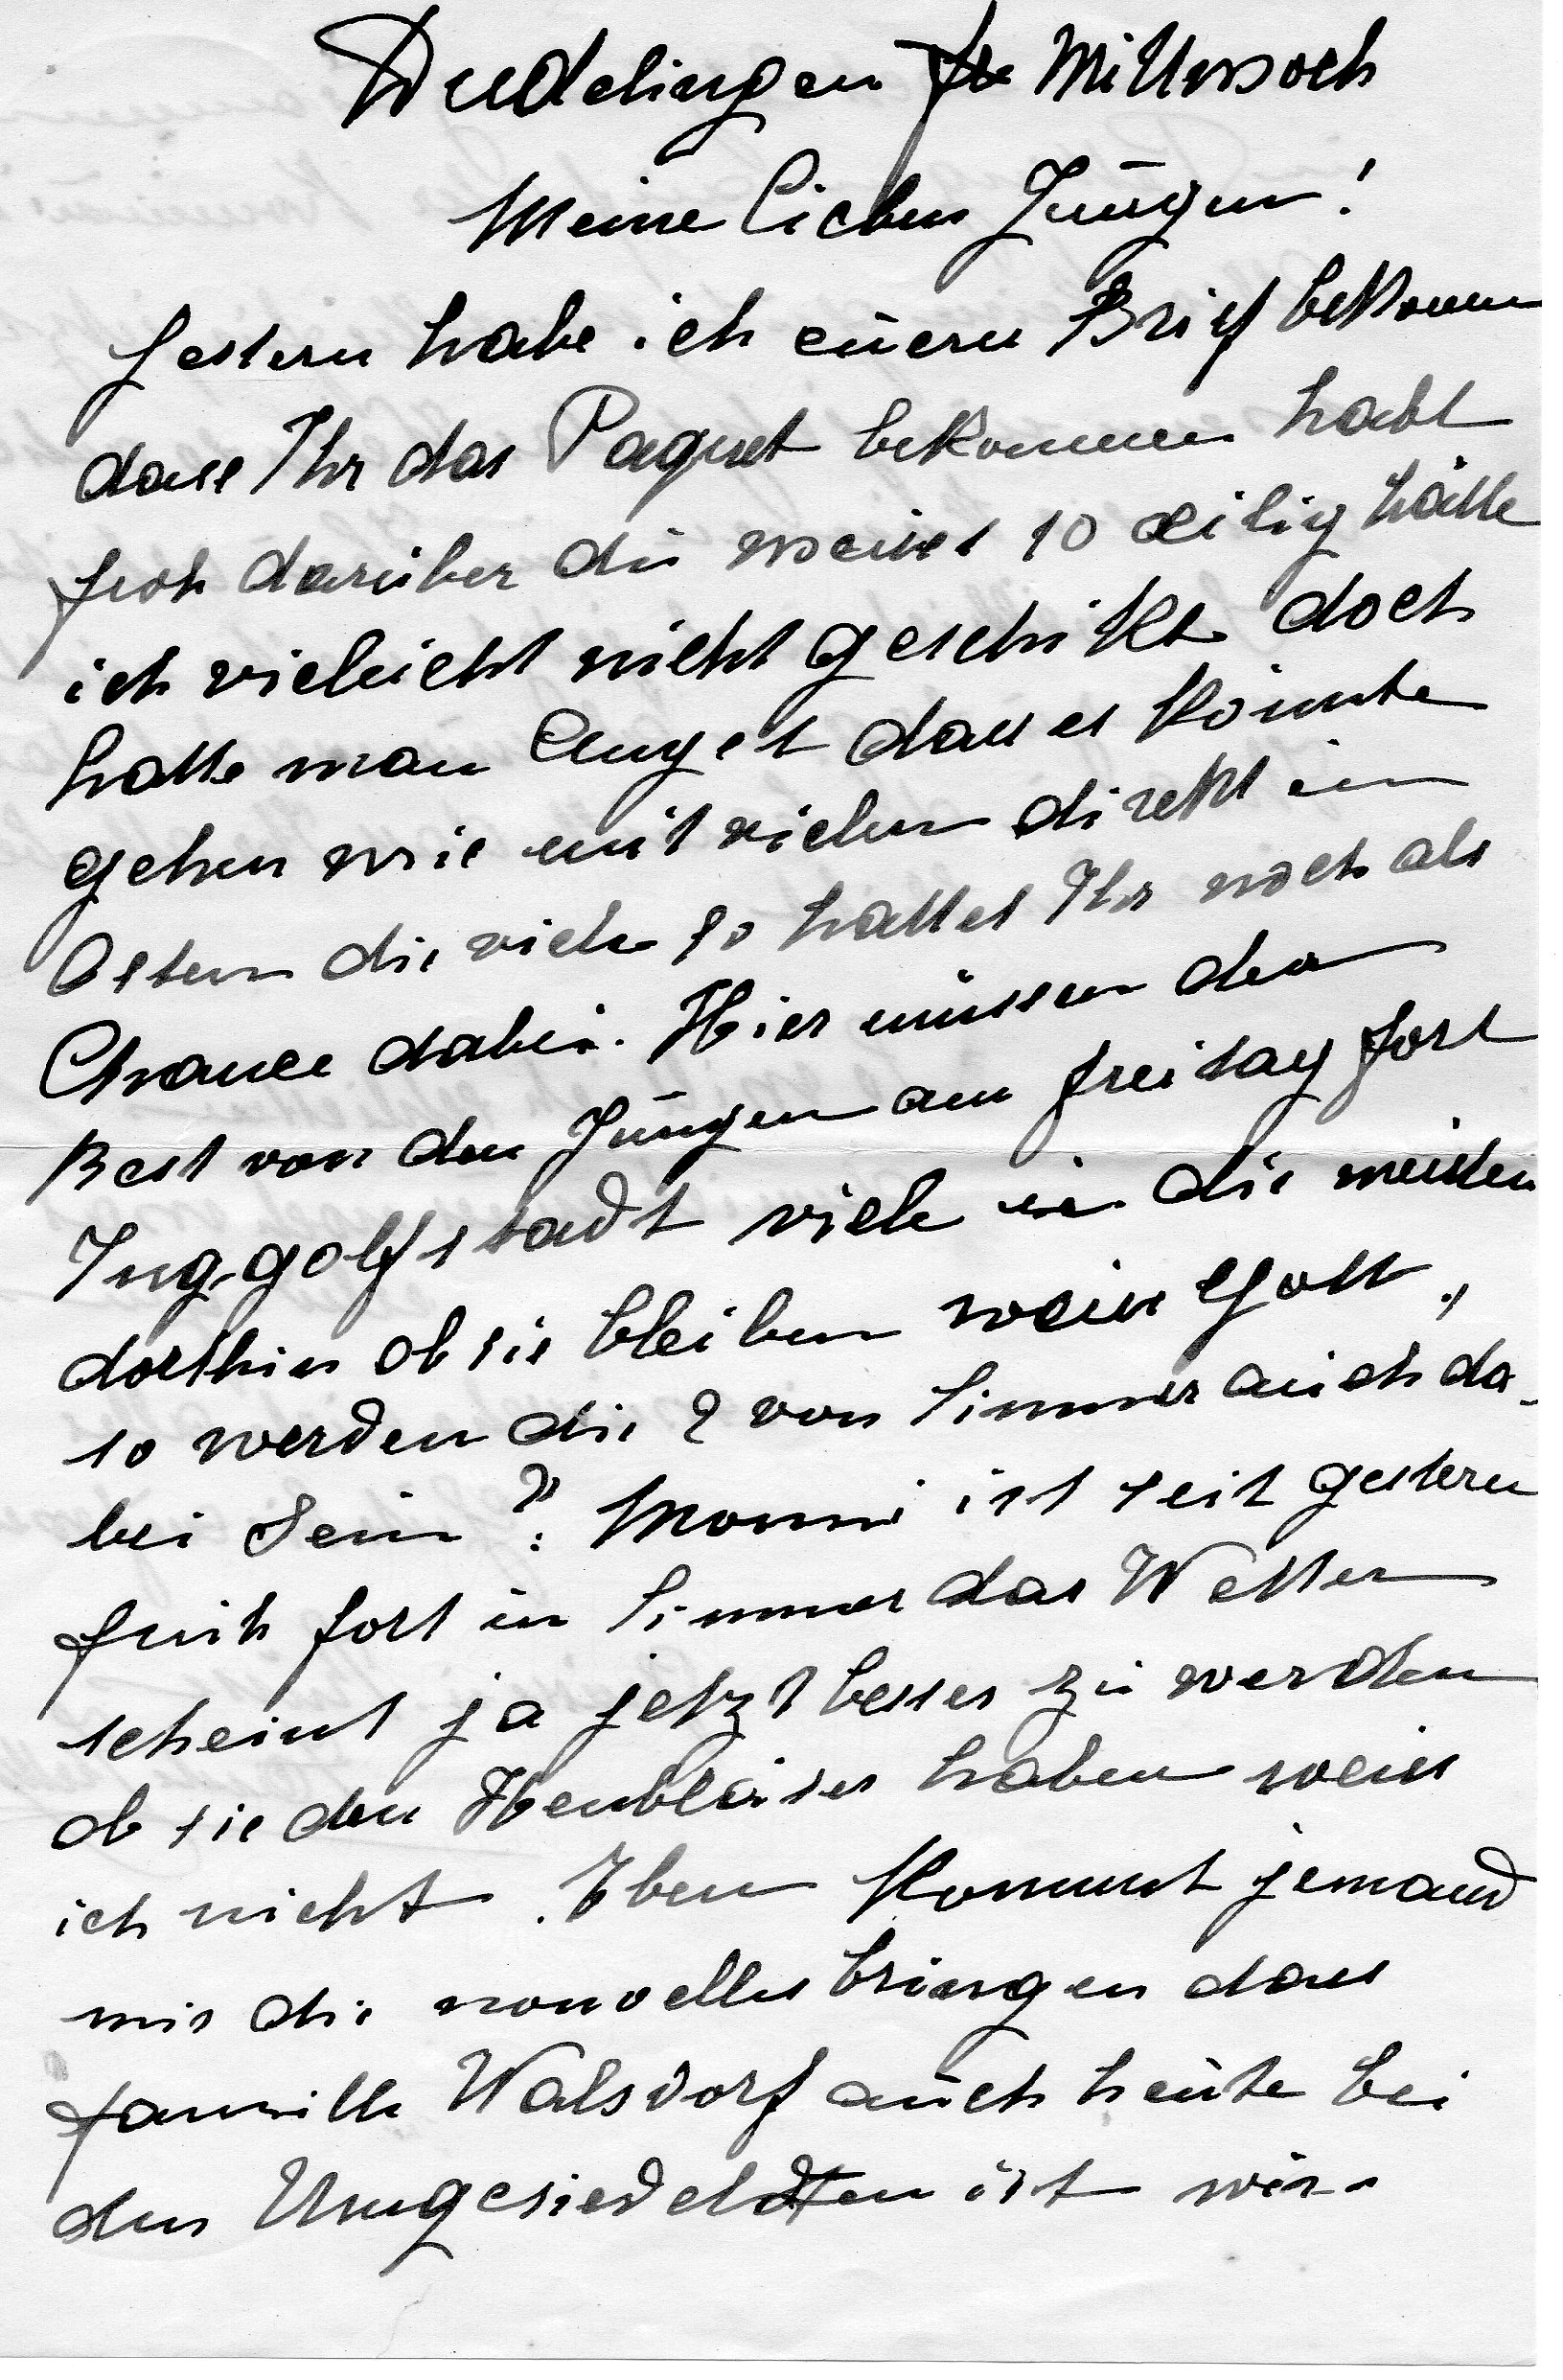 Düdelingen Mittwoch
Meine lieben Jungen!
Gestern habe ich euern Brief bekommen
dass Ihr das Paquet bekommen habt
froh darüber die weiss so eilig hätte
ich vieleicht nicht geschikt doch
hatte man Angst dass es könnte
gehen wie mit vielen direkt im
Osten die viele so hattet Ihr noch als
Chance dabei. Hier müssen der
Rest von den Jungen am freitag fort
Inggolfstadt viele in die meisten
dorthin ob sie bleiben weiss Gott,
so werden die 2 von Simmer auch da-
bei sein? Monni ist seit gestern
früh fort in Simmer das Wetter
scheint ja jetzt besser zu werden
ob sie den Heubläser haben weiss
ich nicht. Eben kommt jemand
mir die nouvelles bringen dass
familli Walsdorf auch heute bei
den Umgesiedelten ist wir